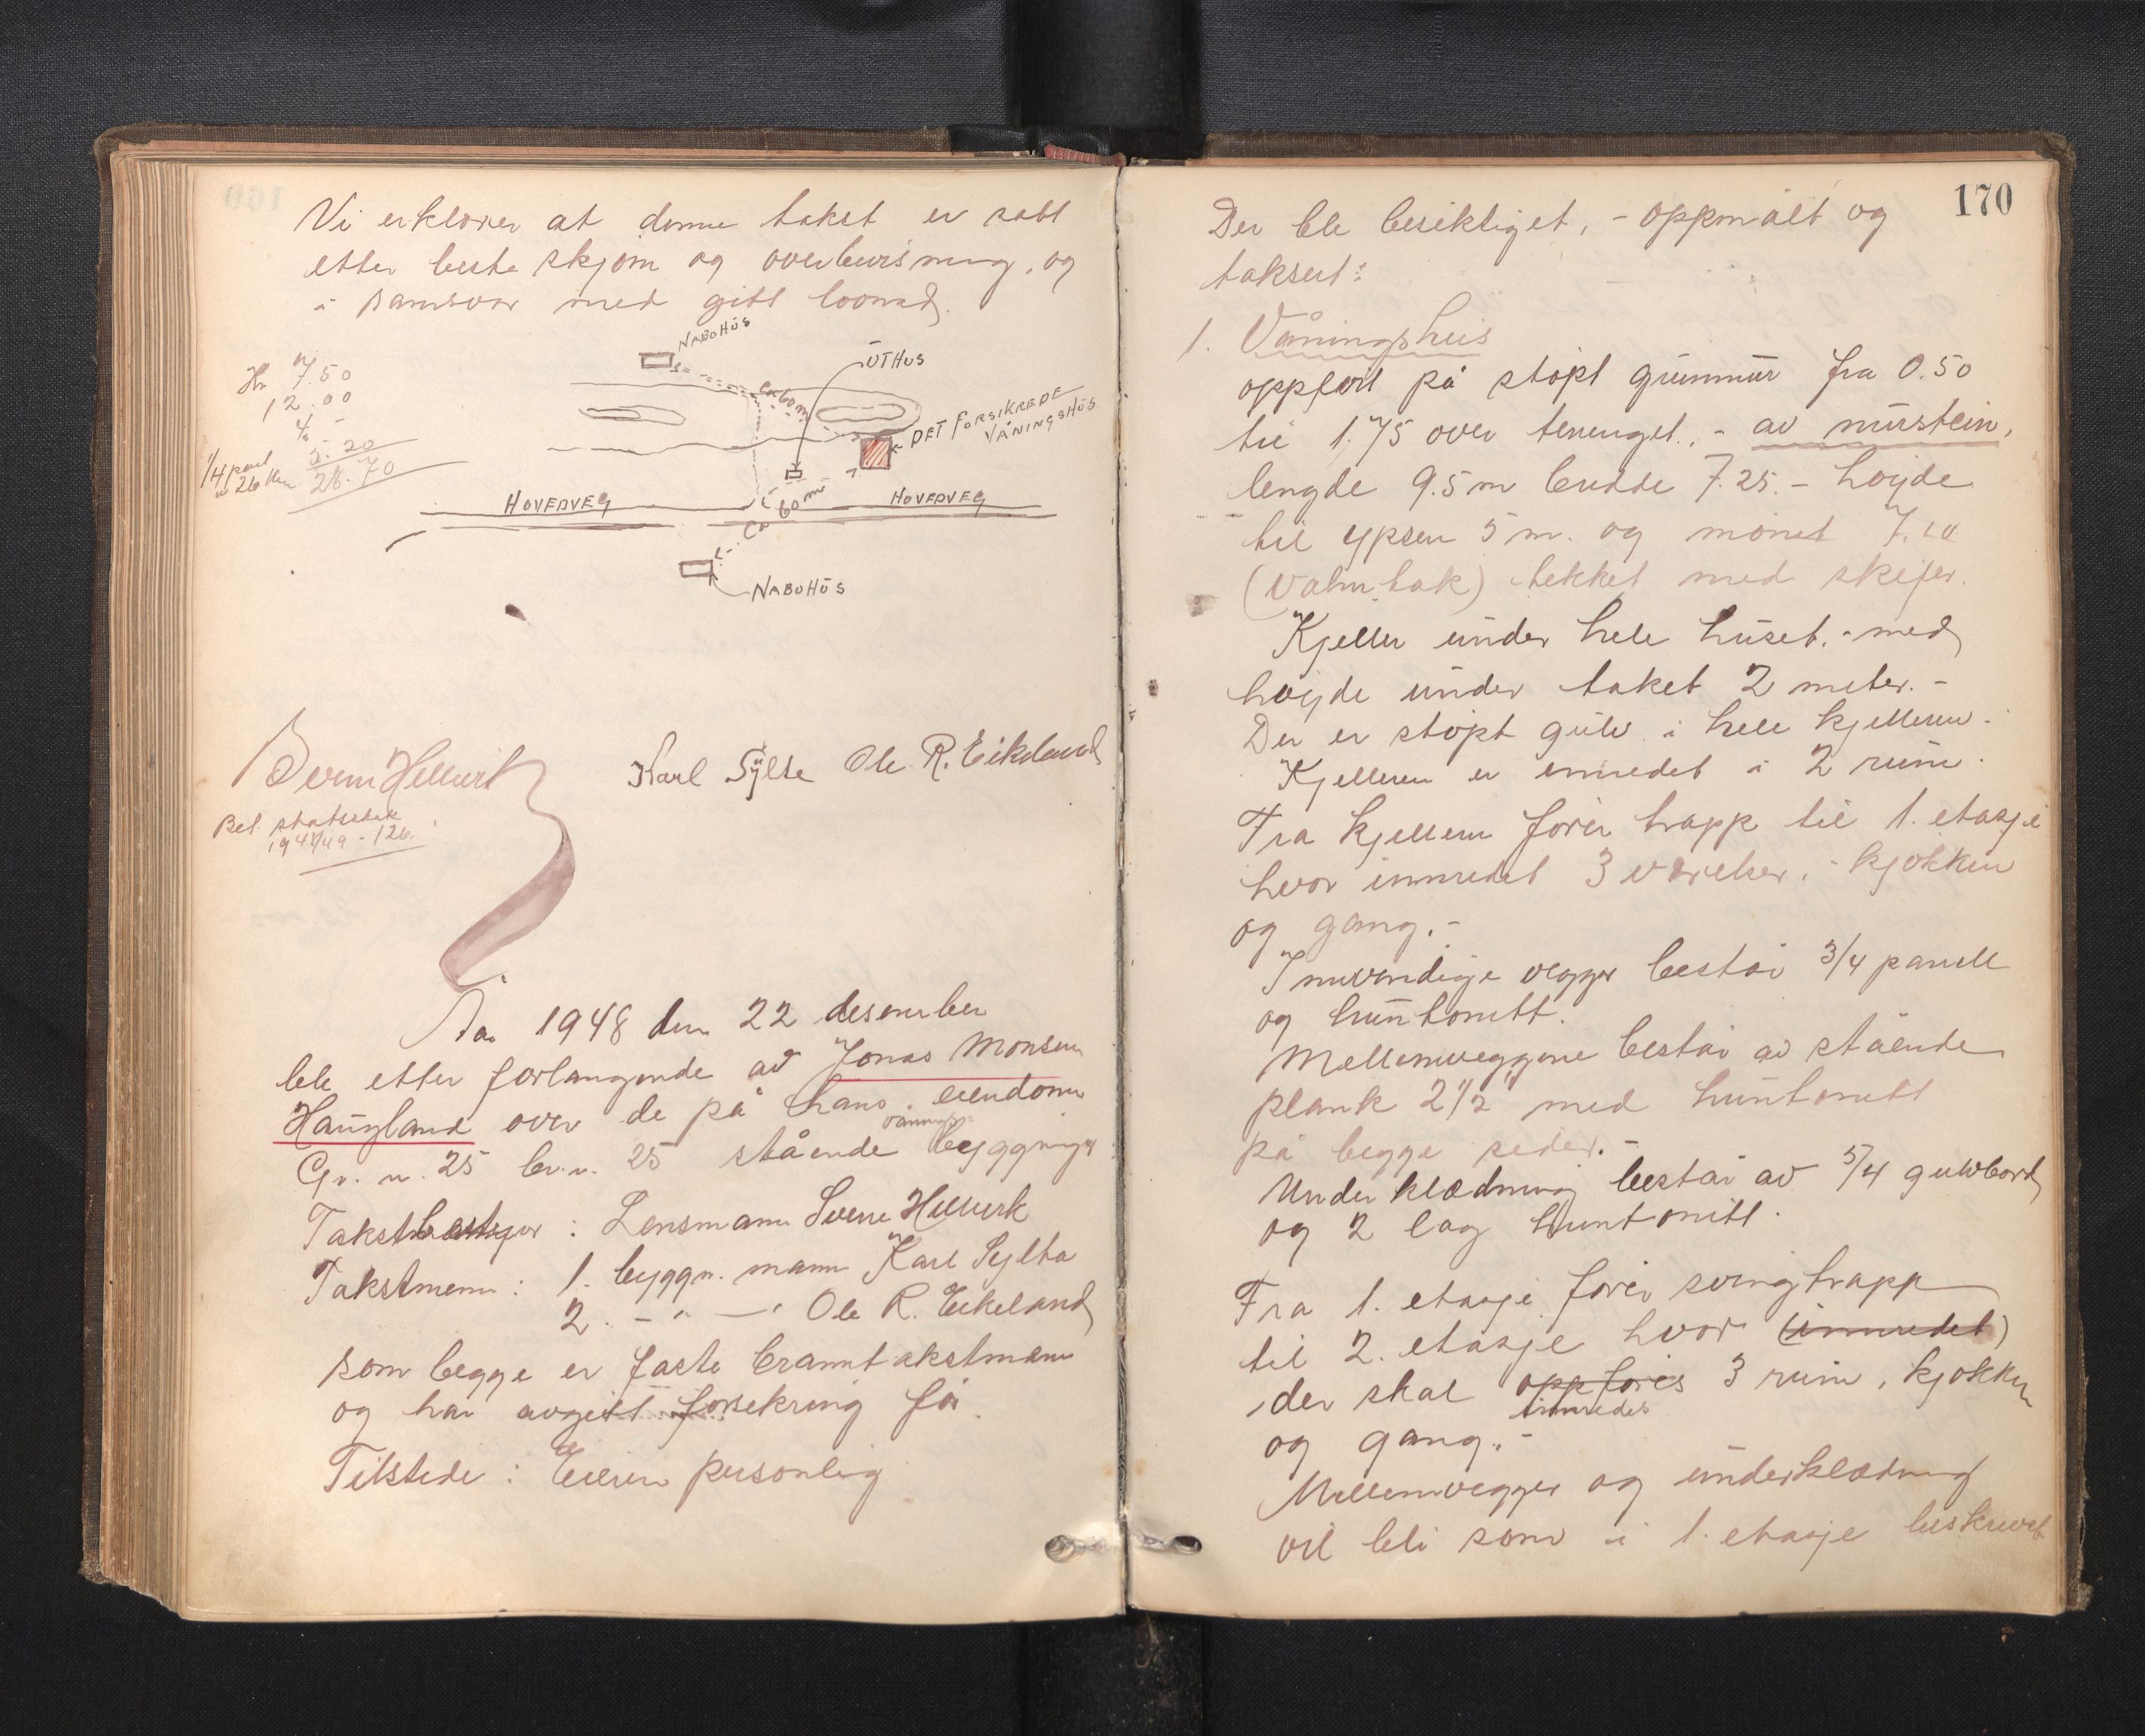 Vi erklærer at denne takst er satt
etter beste skjønn og overbevisning, og
i samsvar med gitt lovnad.
NABOHUS
UTHUS
ca 60 m
DET FORSIKREDE
VÅNINGSHUS
HOVEDVEG
HOVEDVEG
ca 60 m
NABOHUS
Kr 7.50
12.00
1/4 part
av 26 km
26.70
Karl Sylte Ole R. Eikeland
År 1948 den 22 desember
ble etter forlangende av Jonas Monsen
Haugland over de på hans eiendom
vånings-
Gr. n. 25 br. n. 25 stående bygninger
Takstbestyrer : Lensmann Sverre Hellesvik
Takstmenn : 1. byggn. mann Karl Sylta
2. - " - Ole R. Eikeland
som begge er faste branntakstmenn
og har avgitt forsikring for
Tilstede : Eieren personlig
170
Der ble besiktiget, - oppmålt og
taksert:
1. Våningshus
oppført på støpt grunnmur fra 0.50
til 1.75 over terrenget. - av murstein,
lengde 9.5 m bredde 7.25. - høyde
til gpsen 5 m. og mønet 7.10
(Valm tak) tekket med skifer.
Kjeller under hele huset. - med
høyde under taket 2 meter. -
Der er støpt gulv i hele kjelleren.
Kjelleren er innredet i 2 rum.
Fra kjelleren fører trapp til 1. etasje
hvor innredet 3 værelser, - kjøkken
og gang. -
Innvendige vegger består 3/4 panell
og huntonitt.
Mellemveggene består av stående
plank 2 1/2" med huntonitt
på begge sider. -
Underklædning består av 5/4 gulvbord
og 2 lag huntonitt.
Fra 1. etasje fører svingtrapp
til 2. etasje hvor (innredet)
der skal oppføres 3 rum, kjøkken
innredes
og gang. -
Mellemvegger og underklædning
vil bli som i 1. etasje beskrevet